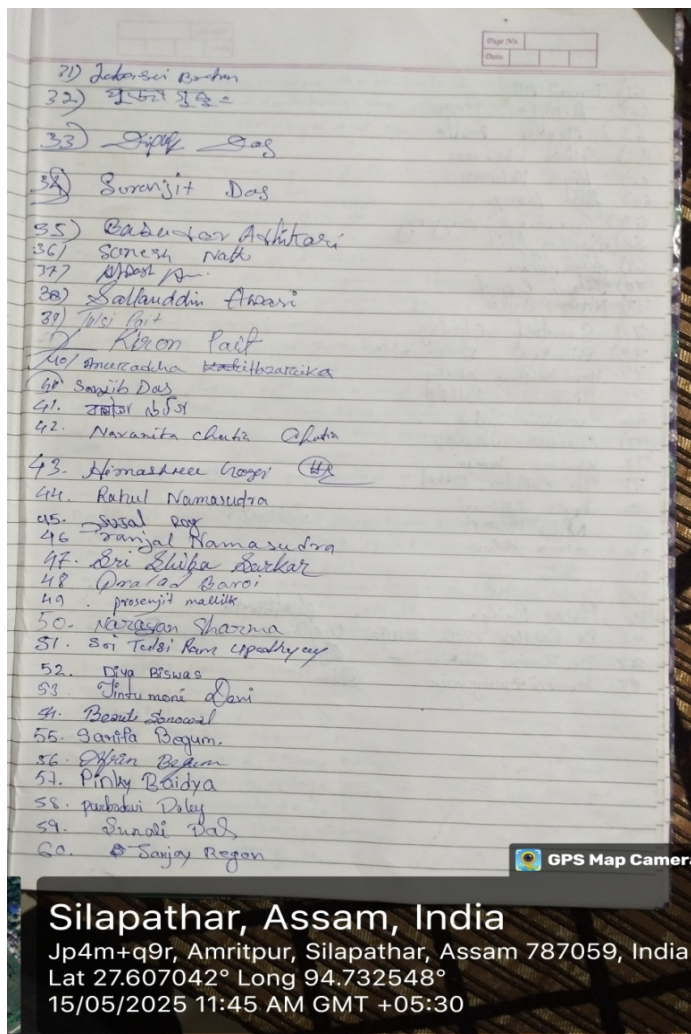 Page No.
Date
31)
32)
33) Das
34) Suranjit Das
35) Adhikari
36) Sanesh Nath
37)
38) Sallauddin Ansari
39) Tulsi Pait
Kiron Pait
40/
40 Sanjib Das
41.
42. Navanita Chutia Chutia
43. Himashree
44. Rahul Namasudra
45. Sujal Roy
46 Pranjal Namasudra
47. Sri Shiba Sarkar
48 Pralad Baroi
49. prosenjit mallik
50. Narayan Sharma
51. Sri Tulsi Ram Upadhyay
52. Diya Biswas
53 Jintumoni Devi
54. Beauti Sonowal
55. Sarifa Begum.
56. Begum
57. Pinky Baidya
58. Doley
59. Sunali Das
60. Sanjoy Regon
GPS Map Camera
Silapathar, Assam, India
Jp4m+q9r, Amritpur, Silapathar, Assam 787059, India
Lat 27.607042° Long 94.732548°
15/05/2025 11:45 AM GMT +05:30